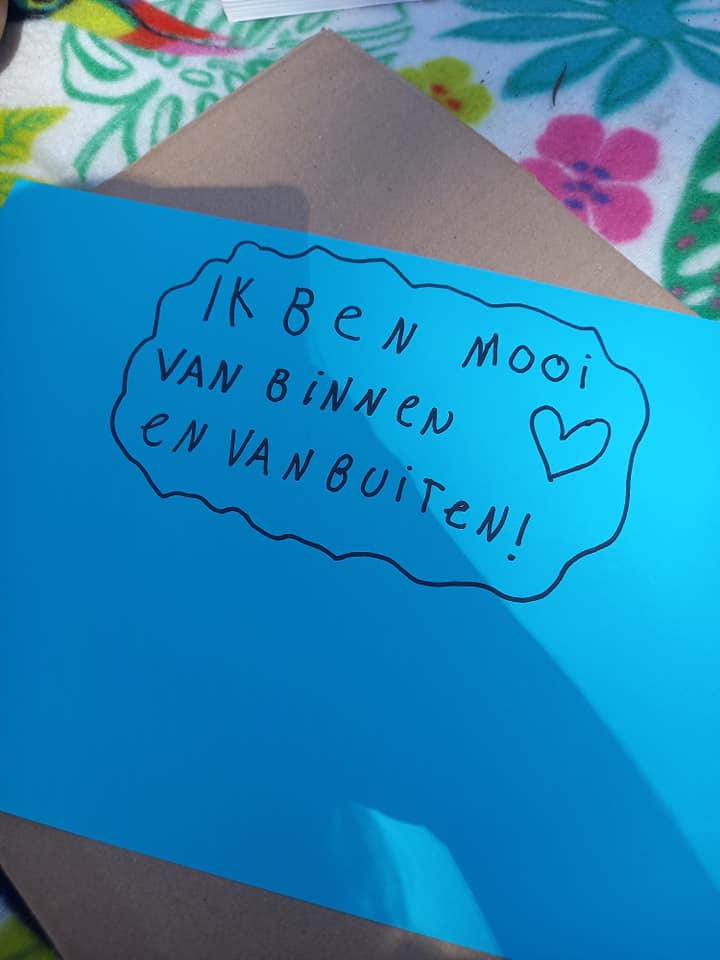 IK BeN MOOi
VAN BiNNeN
eN VAN BUiTeN!